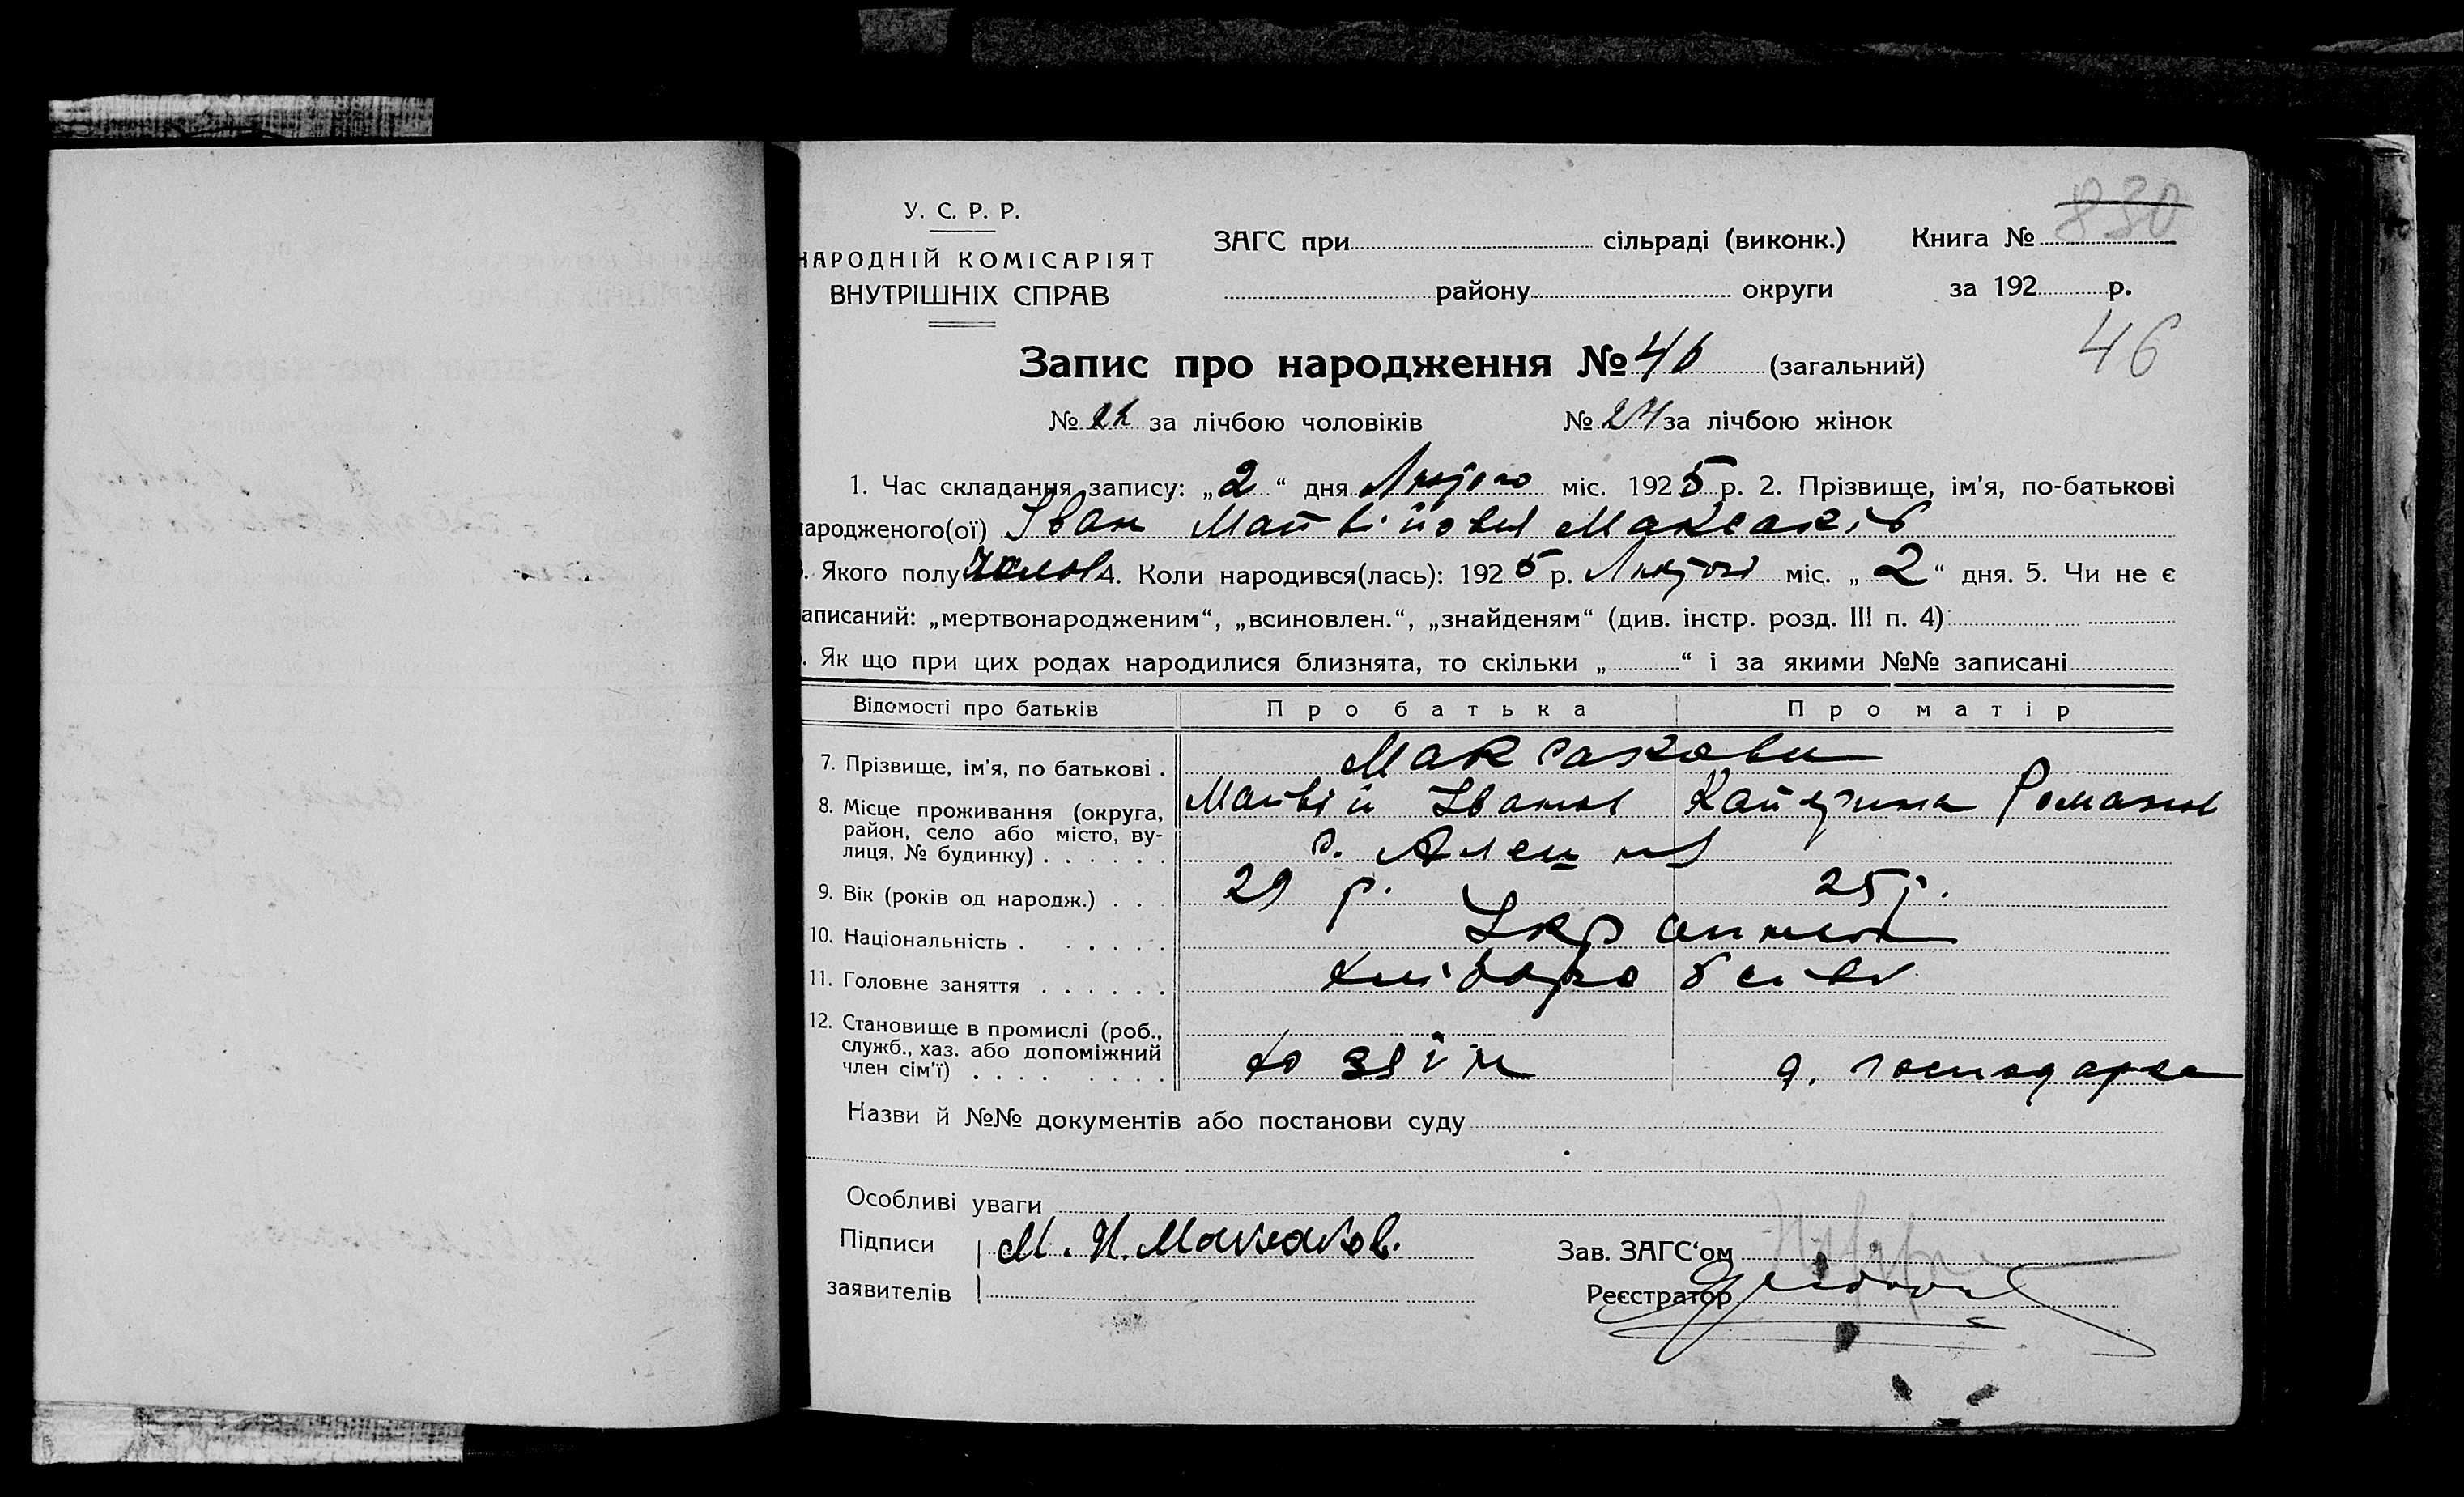 У. С. Р. Р.
НАРОДНІЙ КОМІСАРІЯТ
ВНУТРІШНІХ СПРАВ
ЗАГС при сільраді (виконк.) Книга № 830
району округи за 192 р.
46
Запис про народження № 46 (загальний)
№ 22 за лічбою чоловіків № 24 за лічбою жінок
1. Час складання запису: „2“ дня Лютого міс. 1925 р. 2. Прізвище, ім'я, по-батькові
народженого(ої) Іван Матвійович Максаків
. Якого полу Чолов. 4. Коли народився(лась): 1925 р. Лютого міс. „2“ дня. 5. Чи не є
записаний: „мертвонародженим“, „всиновлен.“, „знайденям“ (див. інстр. розд. III п. 4)
. Як що при цих родах народилися близнята, то скільки „ “ і за якими №№ записані
Відомості про батьків Про батька Про матір
7. Прізвище, ім'я, по батькові . Максакови
Матвій Іванов Катерина Романов
8. Місце проживання (округа, район, село або місто, вулиця, № будинку) . . . . . . с.
9. Вік (років од народж.) . . . 29 р. 25 р.
10. Національність . . . . . . Українці
11. Головне заняття . . . . . . хлібороби
12. Становище в промислі (роб., служб., хаз. або допоміжний член сім'ї) . . . . . . . . хозяїн д. господарка
Назви й №№ документів або постанови суду
Особливі уваги
Підписи заявителів М. И. Максаков.
Зав. ЗАГС'ом
Реєстратор